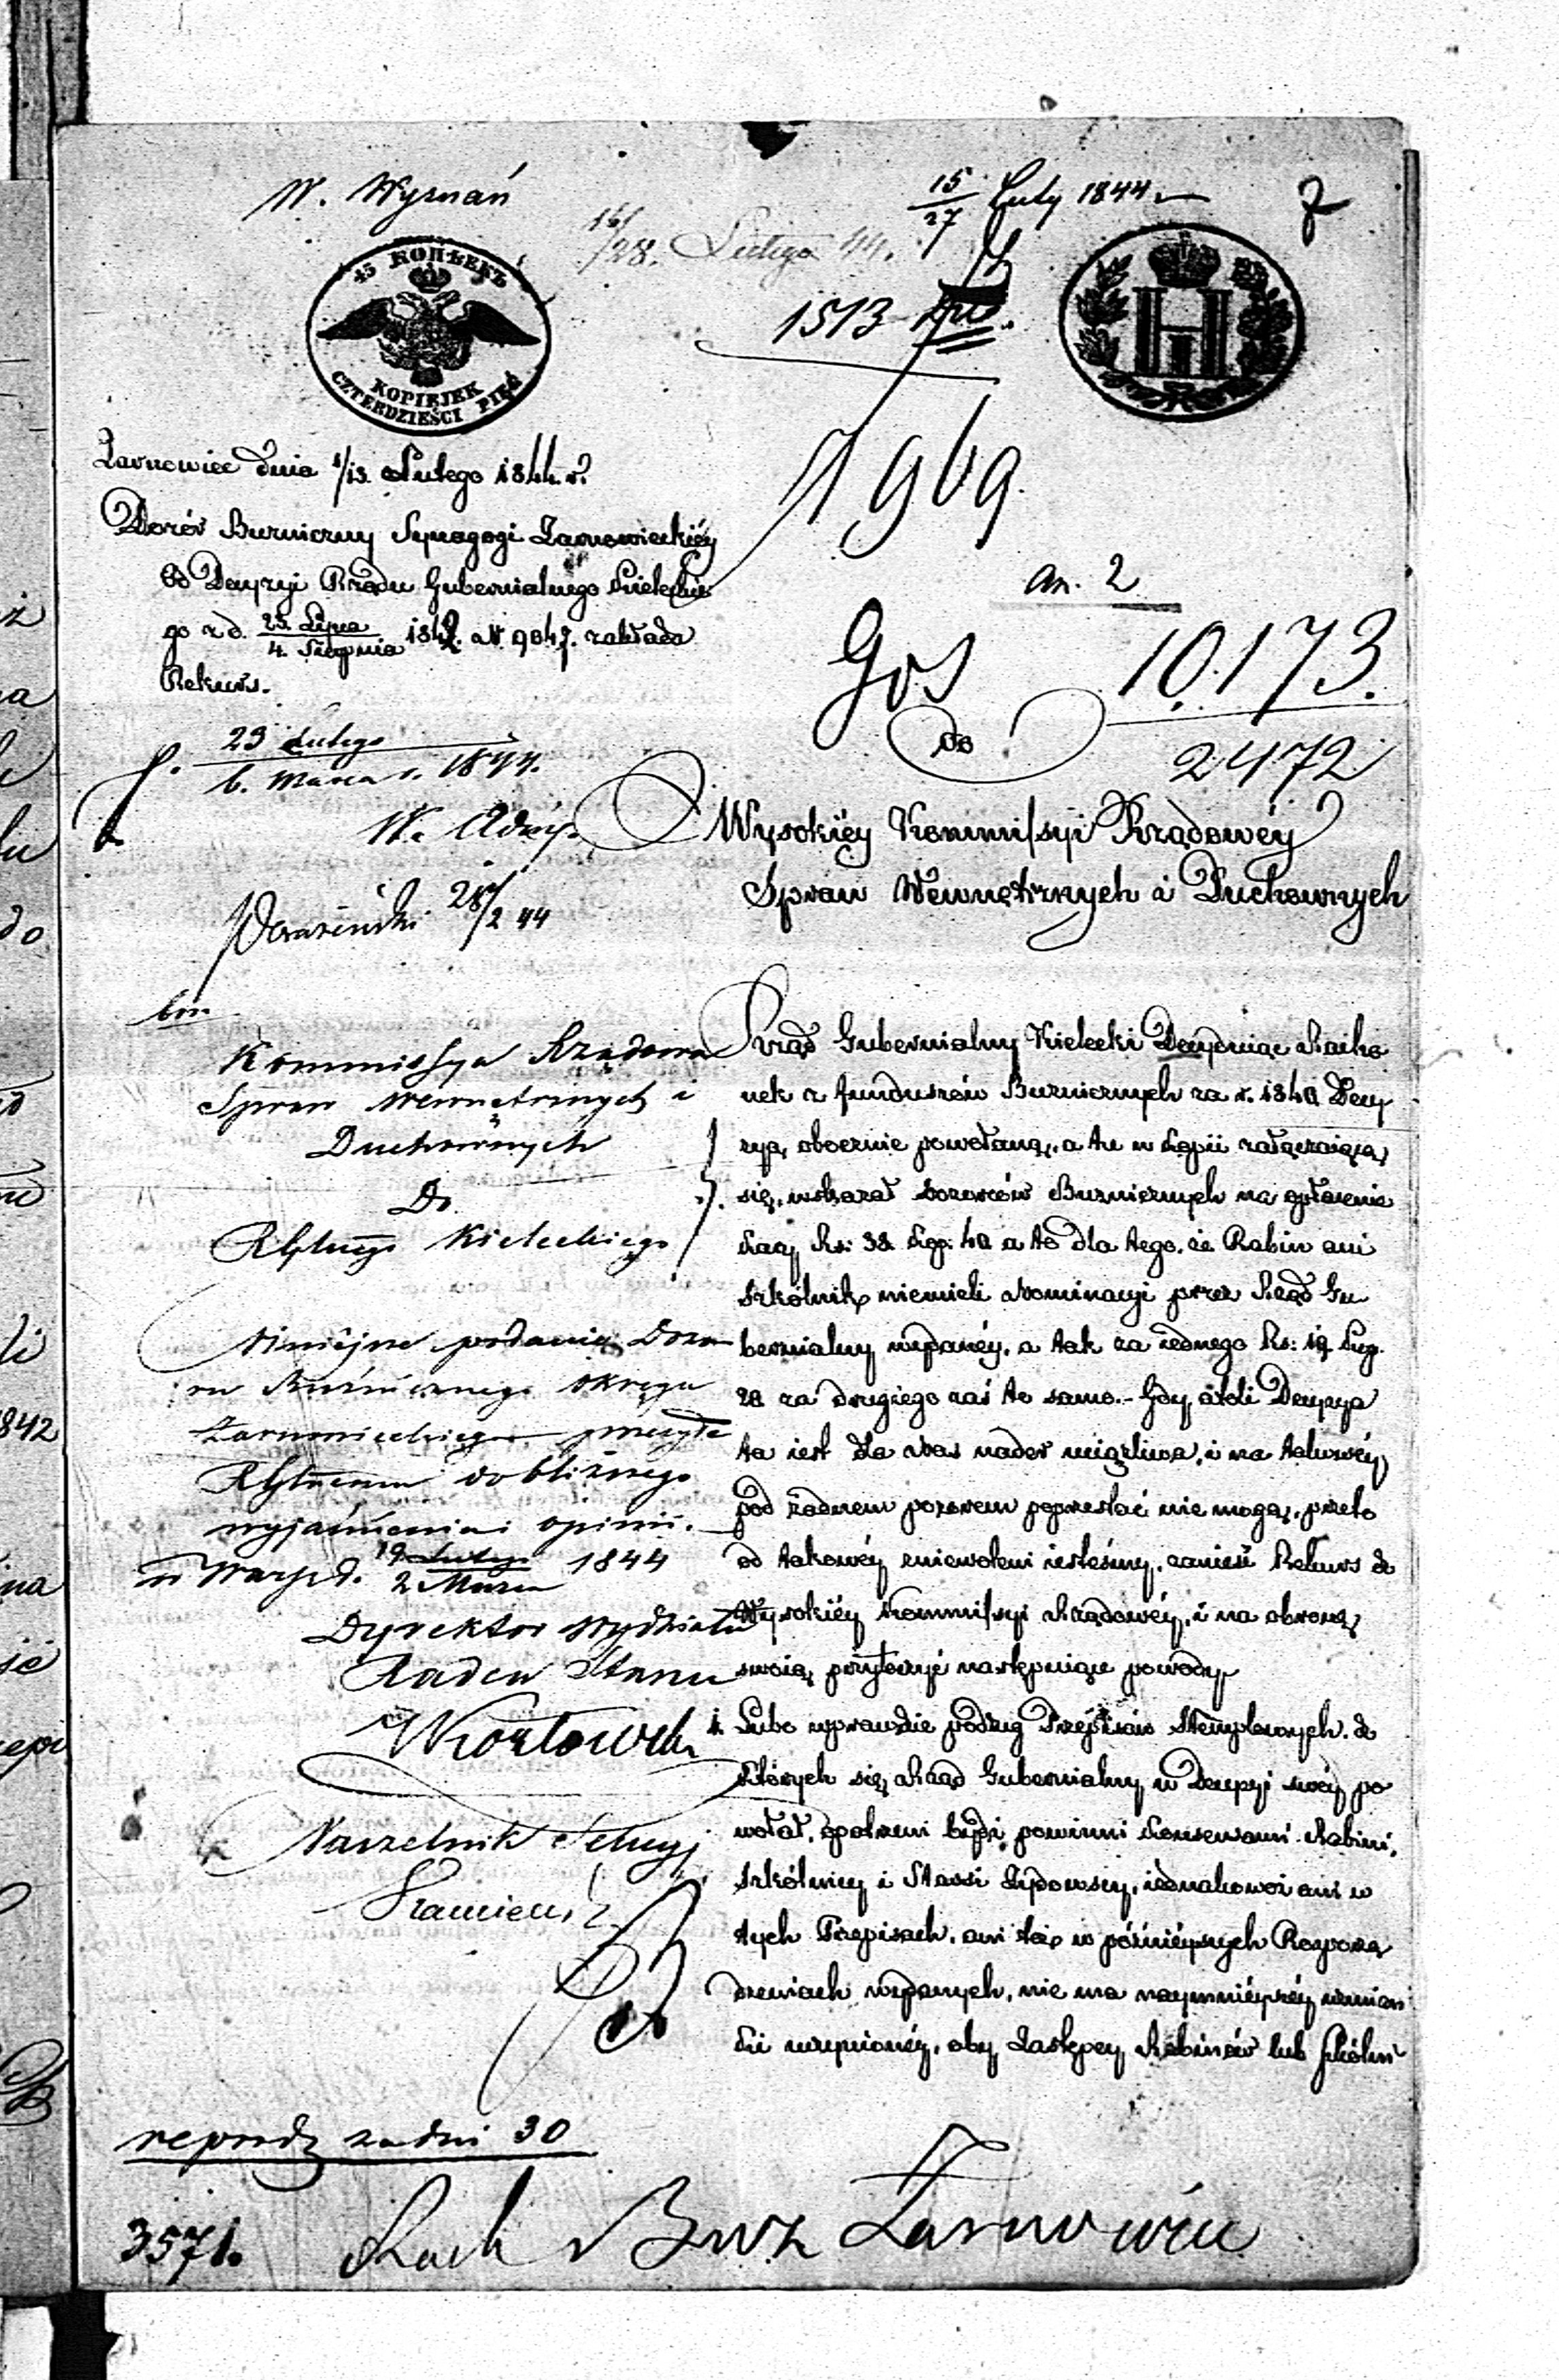 W. Wyznań
15/27 Luty 1844
7
16/28. Lutego 44.
1513
45 КОПѢЕКЪ
KOPIEJEK
CZTERDZIEŚCI PIĘĆ
Żarnowiec dnia 1/13. Lutego 1844. r.
7969
Dozór Bużniczny Synagogi Żarnowieckiéy
od Decyzyi Rządu Gubernialnego Kieleckie
go z d. 23. Lipca / 4. Sierpnia 1842. N 9047. zakłada
Rekurs.
an. 2
Gos 10.173.
2472
Do
23 Lutego / 6. Marca r. 1844.
Wysokiéy Kommissyi Rządowéy
Spraw Wewnętrznych i Duchownych
28/2 44
Kommissya Rządowa
Spraw Wewnętrznych i
Duchownych
Do
Rządu Gubernialny Kielecki Decydując Rachu
nek z funduszów Bużnicznych za r. 1840 Decy
zyą, obocznie powołaną, a tu w kopii załączaiącą
się, wskazał dozorców Bużnicznych na opłacenie
kary Rs: 38. kop: 40 a to dla tego, że Rabin ani
Szkólnik niemieli Nominacyi przez Rząd Gu
bernialny wydanéy, a tak za jednego Rs: 19 kop.
20 za drugiego zaś to samo.- Gdy atoli Decyzya
ta iest dla nas nader uciążliwa, i na takowéy
pod żadnem pozorem poprzestać nie mogąc, przeto
od takowéy zniewoleni iesteśmy, zanieść Rekurs do
Wysokiéy Kommissyi Rządowéy, i na obronę
swoią, przytoczyć następuiące powody
1. Lubo wprawdzie podług Przepisów Stemplowych, do
których się Rząd Gubernialny w Decyzyi swéy po
wołał, opatrzeni bydź powinni Konsensami Rabini,
Szkólnicy i Starsi Żydowscy, iednakowoż ani w
tych Przepisach, ani też w późniéyszych Rozporzą
dzeniach wydanych, nie ma naymniéyszéy wzmian
ki uczynionéy, aby Zastępcy Rabinów lub Szkólni
Kieleckiego
Niniéjsze podanie Dozo
ru Bużnicznego Okręgu
Żarnowieckiego przesyła
do bliższego
wyjaśnienia i opinii.
w Warsz. d. 19 Lutego / 2 Marca 1844
Dyrektor Wydziału
Radca Stanu
Naczelnik Sekcyi
za dni 30
3571.
Rach Buz Żarnowiec